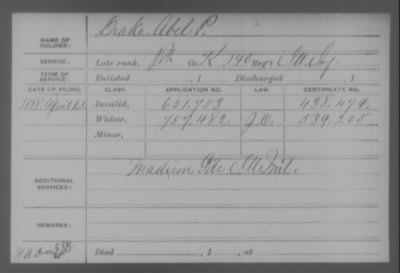 NAME OF SOLDIER: Drake Abel P.
SERVICE: Late rank, Pvt Co. K, 140 Reg't Ill Inf.
TERM OF SERVICE: Enlisted , 1 Discharged , 1
DATE OF FILING. CLASS. APPLICATION NO. LAW. CERTIFICATE NO.
1888 April Invalid, 651.753 438.479.
Widow, 757,482 J.C. 539.205
Minor,
ADDITIONAL SERVICES: Madison Gds Ill Mil.
REMARKS:
Died , 1 , at